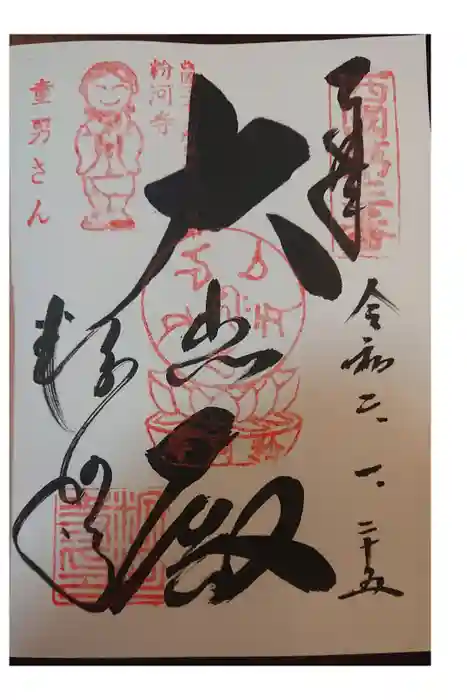 奉拝
西国第三番
令和二、一、二十五
大悲殿
粉河寺
粉河寺
童男さん